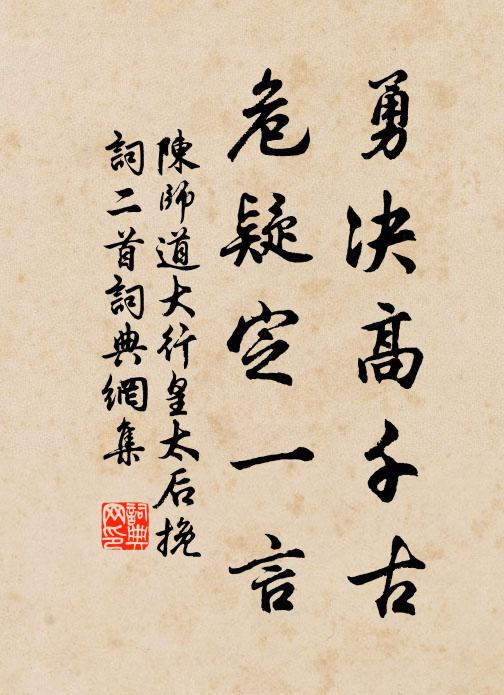 勇决高千古
危疑定一言
陳師道大行皇太后挽
詞二首詞典網集
詞典网印